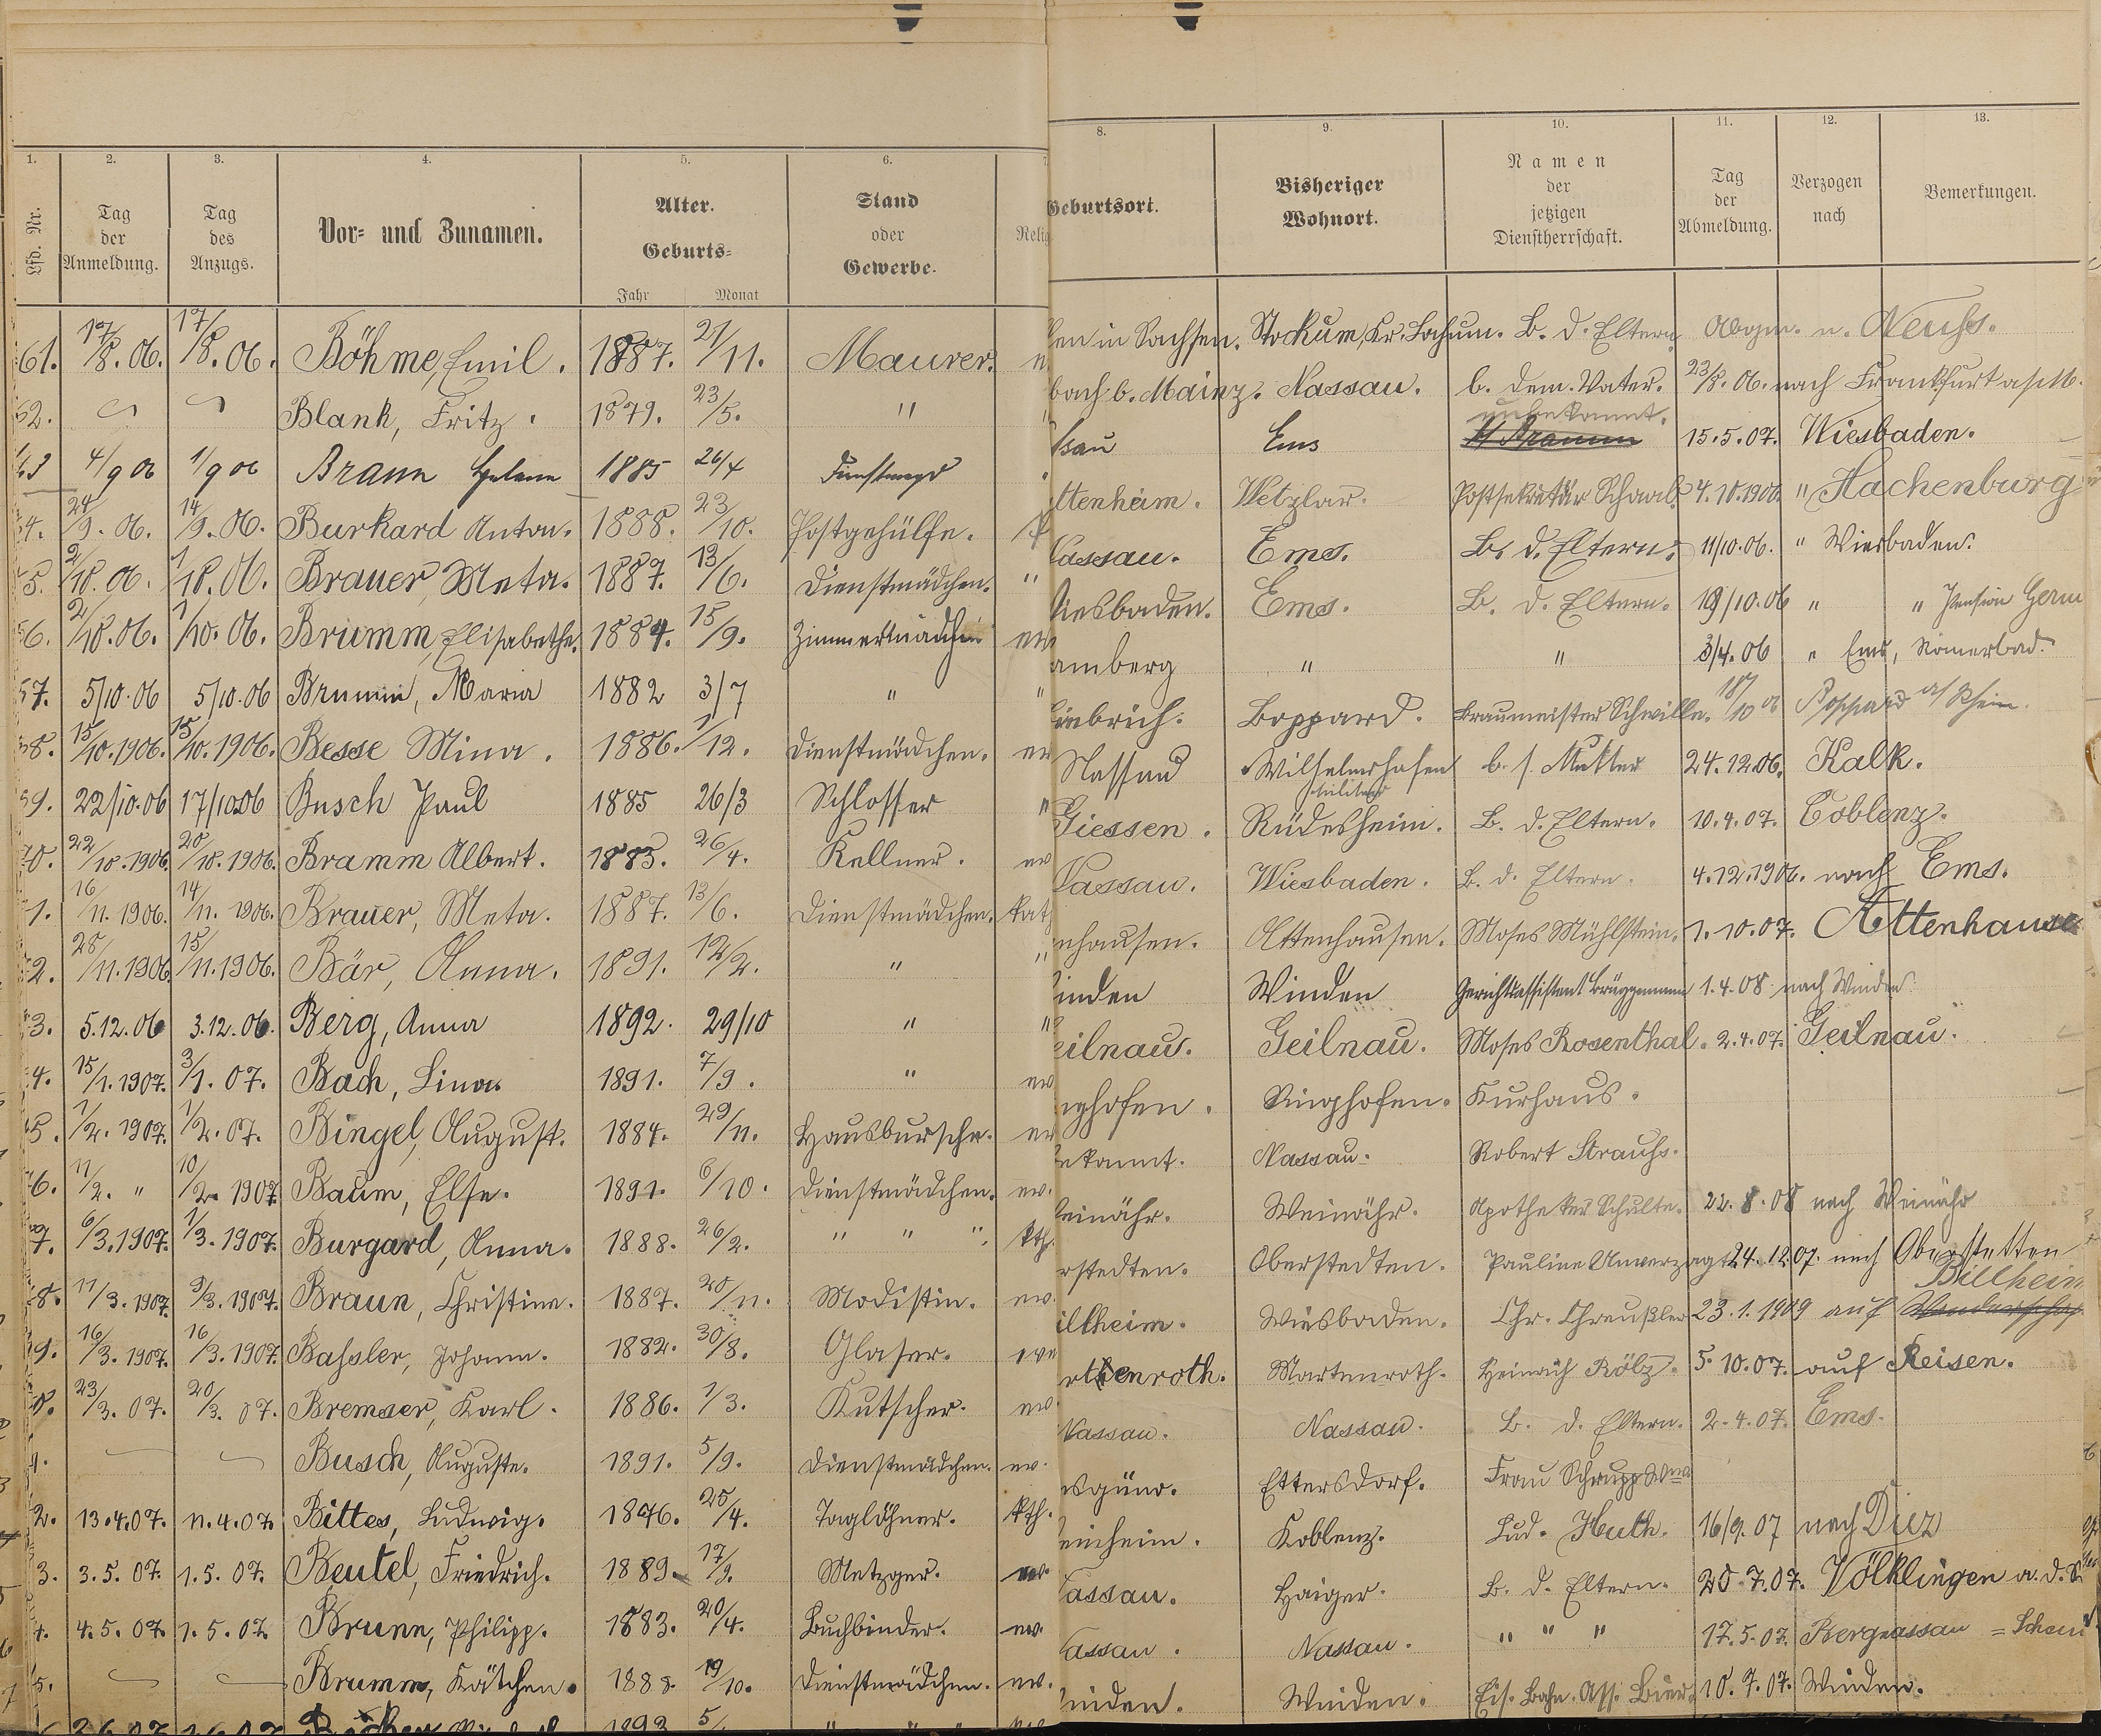 1. 2. 3. 4. 5. 6. 7
Lfd. Nr. Tag der Anmeldung. Tag des Anzugs. Vor- und Zunamen. Alter. Geburts- Jahr Monat Stand oder Gewerbe. Relig
61. 17/8. 06. 17/8. 06. Böhme, Emil. 1887. 21/11. Maurer.
62. Blank, Fritz. 1879. 23/5. "
63 4/9 06 1/9 06 Braun Helene 1885 26/4 Dienstmagd "
64. 24/9. 06. 14/9. 06. Burkard Anton. 1888. 23/10. Postgehülfe.
65. 2/10. 06. 1/10. 06. Brauer, Meta. 1887. 13/6. Dienstmädchen. "
66. 2/10. 06. 1/10. 06. Brumm, Elisabethe. 1884. 15/9. Zimmermädchen ev
67. 5/10. 06 5/10. 06 Brumm, Maria 1882 3/7 " "
68. 15/10. 1906. 15/10. 1906. Besse Mina. 1886. 1/12. Dienstmädchen. ev
69. 22/10. 06 17/10 06 Busch Paul 1885 26/3 Schlosser "
70. 22/10. 1906. 20/10. 1906. Bramm Albert. 1883. 26/4. Kellner. ev
1. 16/11. 1906. 14/11. 1906. Brauer, Meta. 1887. 13/6. Dienstmädchen. kath
2. 28/11. 1906. 15/11. 1906. Bär, Anna. 1891. 12/2. " "
3. 5.12.06 3.12.06. Berg, Anna 1892. 29/10 " "
4. 15/1. 1907. 3/1. 07. Bach, Lina. 1891. 7/9. " ev
5. 1/2. 1907. 1/2. 07. Bingel, August. 1884. 29/11. Hausbursche. ev
6. 11/2. " 10/2. 1907. Baum, Else. 1891. 6/10. Dienstmädchen. ev.
7. 6/3. 1907. 1/3. 1907. Burgard, Anna. 1888. 26/2. " " " kth.
8. 11/3. 1907. 9/3. 1907. Braun, Christine. 1887. 20/11. Modistin. ev.
9. 16/3. 1907. 16/3. 1907. Bassler, Johann. 1882. 30/8. Glaser. ev
23/3. 07. 20/3. 07. Bremser, Karl. 1886. 1/3. Kutscher. ev.
Busch, Auguste. 1891. 5/9. Dienstmädchen. ev.
2. 13.4.07. 11.4.07. Bittes, Ludwig. 1876. 25/4. Taglöhner. kth.
3. 3.5.07. 1.5.07. Beutel, Friedrich. 1889. 17/9. Metzger. ev.
4. 4.5.07. 1.5.07. Brunn, Philipp. 1883. 20/4. Buchbinder. ev.
5. Brumm, Kätchen. 1888. 19/10. Dienstmädchen. ev.
8. 9. 10. 11. 12. 13.
Geburtsort. Bisheriger Wohnort. Namen der jetzigen Dienstherrschaft. Tag der Abmeldung. Verzogen nach Bemerkungen.
en in Sachsen. Stockum, Kr. Bochum. B. d. Eltern. Abgm. n. Neuss.
bach b. Mainz. Nassau. b. dem Vater. 23/8. 06. nach Frankfurt a/M.
unbekannt.
ssau Ems 15.5.07. Wiesbaden.
ttenheim. Wetzlar. Postsekretär Schaab. 4.10.1906. " Hachenburg
assau. Ems. B. d. Eltern. 11/10.06. " Wiesbaden.
iesbaden. Ems. B. d. Eltern. 19/10.06 " " Pension Germ
amberg " " 3/4.06 " Ems, Römerbad.
iebrich. Boppard. Braumeister Schwille. 18/10 06 Boppard a/Rhein.
Nassau Wilhelmshafen b. s. Mutter 24.12.06. Kalk.
Militär
Giessen. Rüdesheim. B. d. Eltern. 10.4.07. Coblenz.
assau. Wiesbaden. B. d. Eltern. 4.12.1906. nach Ems.
nhausen. Attenhausen. Moses Mühlstein. 1.10.07. Attenhause
inden Winden Gerichtsassistent Brüggemann 1.4.08 nach Winden.
eilnau. Geilnau. Moses Rosenthal. 2.4.07. Geilnau.
nghofen. Singhofen. Kurhaus.
ekannt. Nassau. Robert Strauss.
einähr. Weinähr. Apotheker Schulte. 22.8.08 nach Weinähr
rstedten. Oberstedten. Pauline Unverzagt 24.12.07. nach Oberstetten
illheim. Wiesbaden. Chr. Threußler 23.1.1909 auf Billheim
rtenroth. Martenroth. Heinrich Rölz. 5.10.07. auf Reisen.
Nassau. Nassau. B. d. Eltern. 2.4.07. Ems.
sgünd. Ettersdorf. Frau Schrupp Wwe
einheim. Koblenz. Lud. Huth. 16/9. 07 nach Diez
assau. Haiger. B. d. Eltern. 20.7.07. Völklingen a. d. S
assau. Nassau. " " " 17.5.07. Bergnassau = Scheu
inden. Winden. Eis. Bahn. Ass. Bier. 10.7.07. Winden.